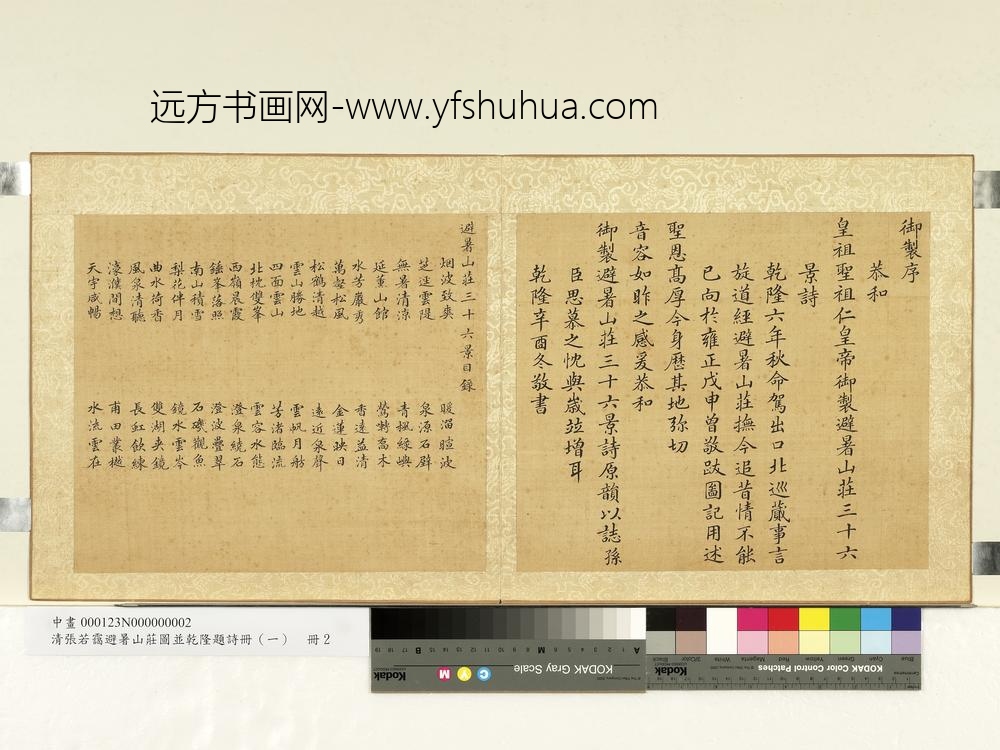 远方书画网-www.yfshuhua.com
御製序
恭和
皇祖聖祖仁皇帝御製避暑山莊三十六
景詩
乾隆六年秋命駕出口北巡蕆事言
旋道經避暑山莊撫今追昔情不能
已向於雍正戊申曾敬跋圖記用述
聖恩高厚今身歷其地弥切
音容如昨之感爰恭和
御製避暑山莊三十六景詩原韻以誌孫
臣思慕之忱與嵗並增耳
乾隆辛酉冬敬書
避暑山莊三十六景目錄
烟波致爽 暖溜暄波
芝逕雲隄 泉源石壁
無暑清涼 青楓綠嶼
延薰山館 鶯轉喬木
水芳巖秀 香遠益清
萬壑松風 金蓮映日
松鶴清越 遠近泉聲
雲山勝地 雲帆月舫
四面雲山 芳渚臨流
北枕雙峯 雲容水態
西嶺晨霞 澄泉繞石
錘峯落照 澄波疊翠
南山積雪 石磯觀魚
梨花伴月 鏡水雲岑
曲水荷香 雙湖夾鏡
風泉清聽 長虹飲練
濠濮間想 甫田叢樾
天宇咸暢 水流雲在
中畫 000123N000000002
清張若靄避暑山莊圖並乾隆題詩冊（一） 冊 2
KODAK Gray Scale
Kodak
C Y M
A 1 2 3 4 5 6 M 8 9 10 11 12 13 14 15 B 17 18 19
KODAK Color Control Patches
Kodak
Blue Cyan Green Yellow Red Magenta White 3/Color Black